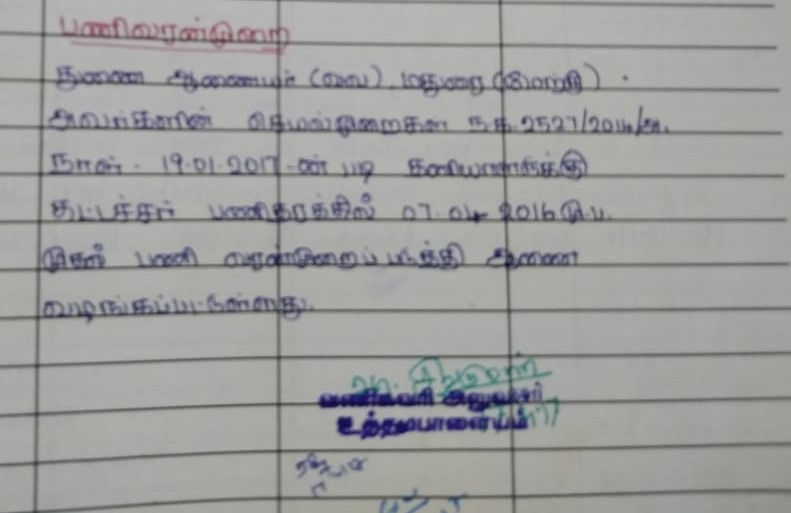 பணிவரன்முறை
துணை ஆணையர் (வவ). மதுரை (மேற்கு).
அவர்களின் செயல்முறைகள் ந.க.2527/2016/அ.
நாள். 19.01.2017-ன் படி
தட்டச்சர் பணிதரத்தில் 07.04 2016 மு.ப.
முதல் பணி வரன்முறைப்படுத்தி ஆணை
வழங்கப்பட்டுள்ளது.
வணிகவரி அலுவலர்
உத்தமபாளையம்